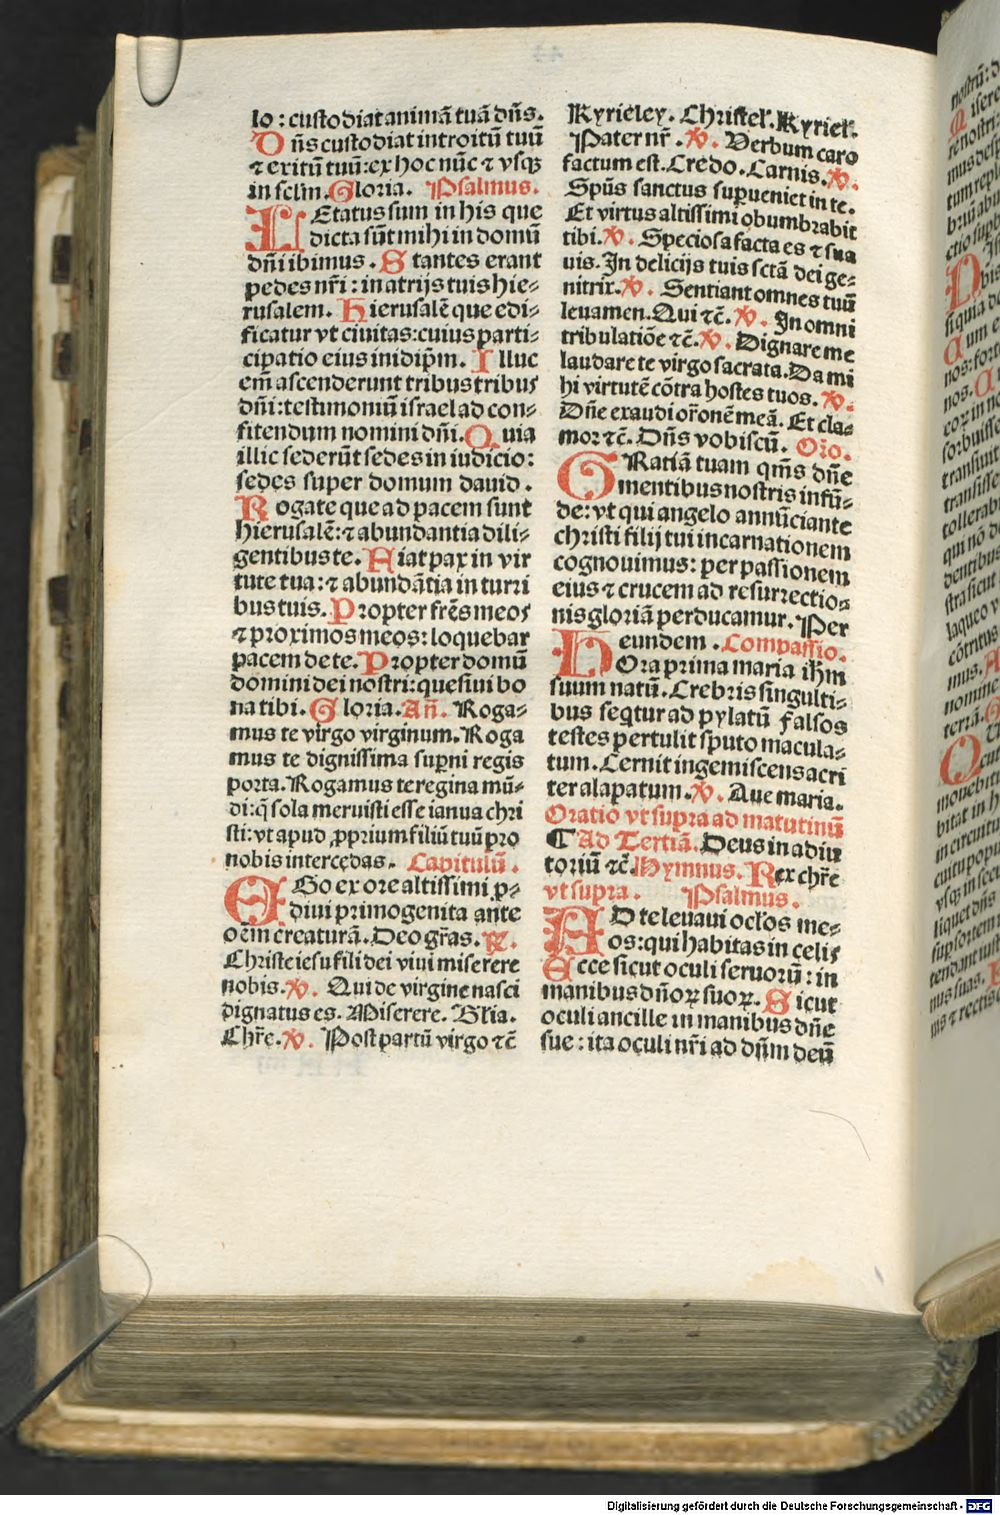 lo : custodiat animā tuā dn̄s.
Dn̄s custodiat introitū tuū
⁊ exitū tuū: ex hoc nūc ⁊ vsqꝫ
in sclm̄. Gloria. Psalmus.
LEtatus sum in his que
dicta sūt mihi in domū
dn̄i ibimus. Stantes erant
pedes nr̄i : in atrijs tuis hie⸗
rusalem. Hierusalē que edi⸗
ficatur vt ciuitas: cuius parti⸗
cipatio eius in idip̄m. Illuc
em̄ ascenderunt tribus tribus
dn̄i: testimoniū israel ad con⸗
fitendum nomini dn̄i. Quia
illic sederūt sedes in iudicio:
sedes super domum dauid.
Rogate que ad pacem sunt
hierusalē: ⁊ abundantia dili⸗
gentibus te. Fiat pax in vir
tute tua: ⁊ abundātia in turri
bus tuis. Propter frēs meos
⁊ proximos meos: loquebar
pacem de te. Propter domū
domini dei nostri: quesiui bo
na tibi. Gloria. Añ. Roga⸗
mus te virgo virginum. Roga
mus te dignissima supni regis
porta. Rogamus te regina mū⸗
di: q̄ sola meruisti esse ianua chri
sti: vt apud ꝓprium filiū tuū pro
nobis intercedas. Capitulū.
EGo ex ore altissimi ꝓ⸗
diui primogenita ante
oēm creaturā. Deo gr̄as. ℟.
Christe iesu fili dei viui miserere
nobis. ℣. Qui de virgine nasci
dignatus es. Miserere. Gl̄ia.
Chr̄e. ℣. Post partū virgo ⁊c̄
Kyrieley. Christel'. Kyriel'.
Pater nr̄. ℣. Verbum caro
factum est. Credo. Carnis. ℣.
Spūs sanctus supueniet in te.
Et virtus altissimi obumbrabit
tibi. ℣. Speciosa facta es ⁊ sua
uis. In delicijs tuis sctā dei ge⸗
nitrix. ℣. Sentiant omnes tuū
leuamen. Qui ⁊c̄. ℣. In omni
tribulatiōe ⁊c̄. ℣. Dignare me
laudare te virgo sacrata. Da mi
hi virtutē cōtra hostes tuos. ℣.
Dn̄e exaudi or̄onē meā. Et cla⸗
mor ⁊c̄. Dn̄s vobiscū. Oro.
GRatiā tuam qm̄s dn̄e
mentibus nostris infū⸗
de: vt qui angelo annūciante
christi filij tui incarnationem
cognouimus: per passionem
eius ⁊ crucem ad resurrectio⸗
nis gloriā perducamur. Per
eundem. Compassio.
HOra prima maria ih̄m
suum natū. Crebris singulti⸗
bus seqtur ad pylatū falsos
testes pertulit sputo macula⸗
tum. Cernit ingemiscens acri
ter alapatum. ℣. Aue maria.
Oratio vt supra ad matutinū
¶ Ad Tertiā. Deus in adiu
toriū ⁊c̄. Hymnus. Rex chr̄e
vt supra. Psalmus.
AD te leuaui oclos me⸗
os: qui habitas in celis
Ecce sicut oculi seruorū: in
manibus dn̄oꝝ suoꝝ. Sicut
oculi ancille in manibus dn̄e
sue: ita oculi nr̄i ad dn̄m deū
Digitalisierung gefördert durch die Deutsche Forschungsgemeinschaft - DFG